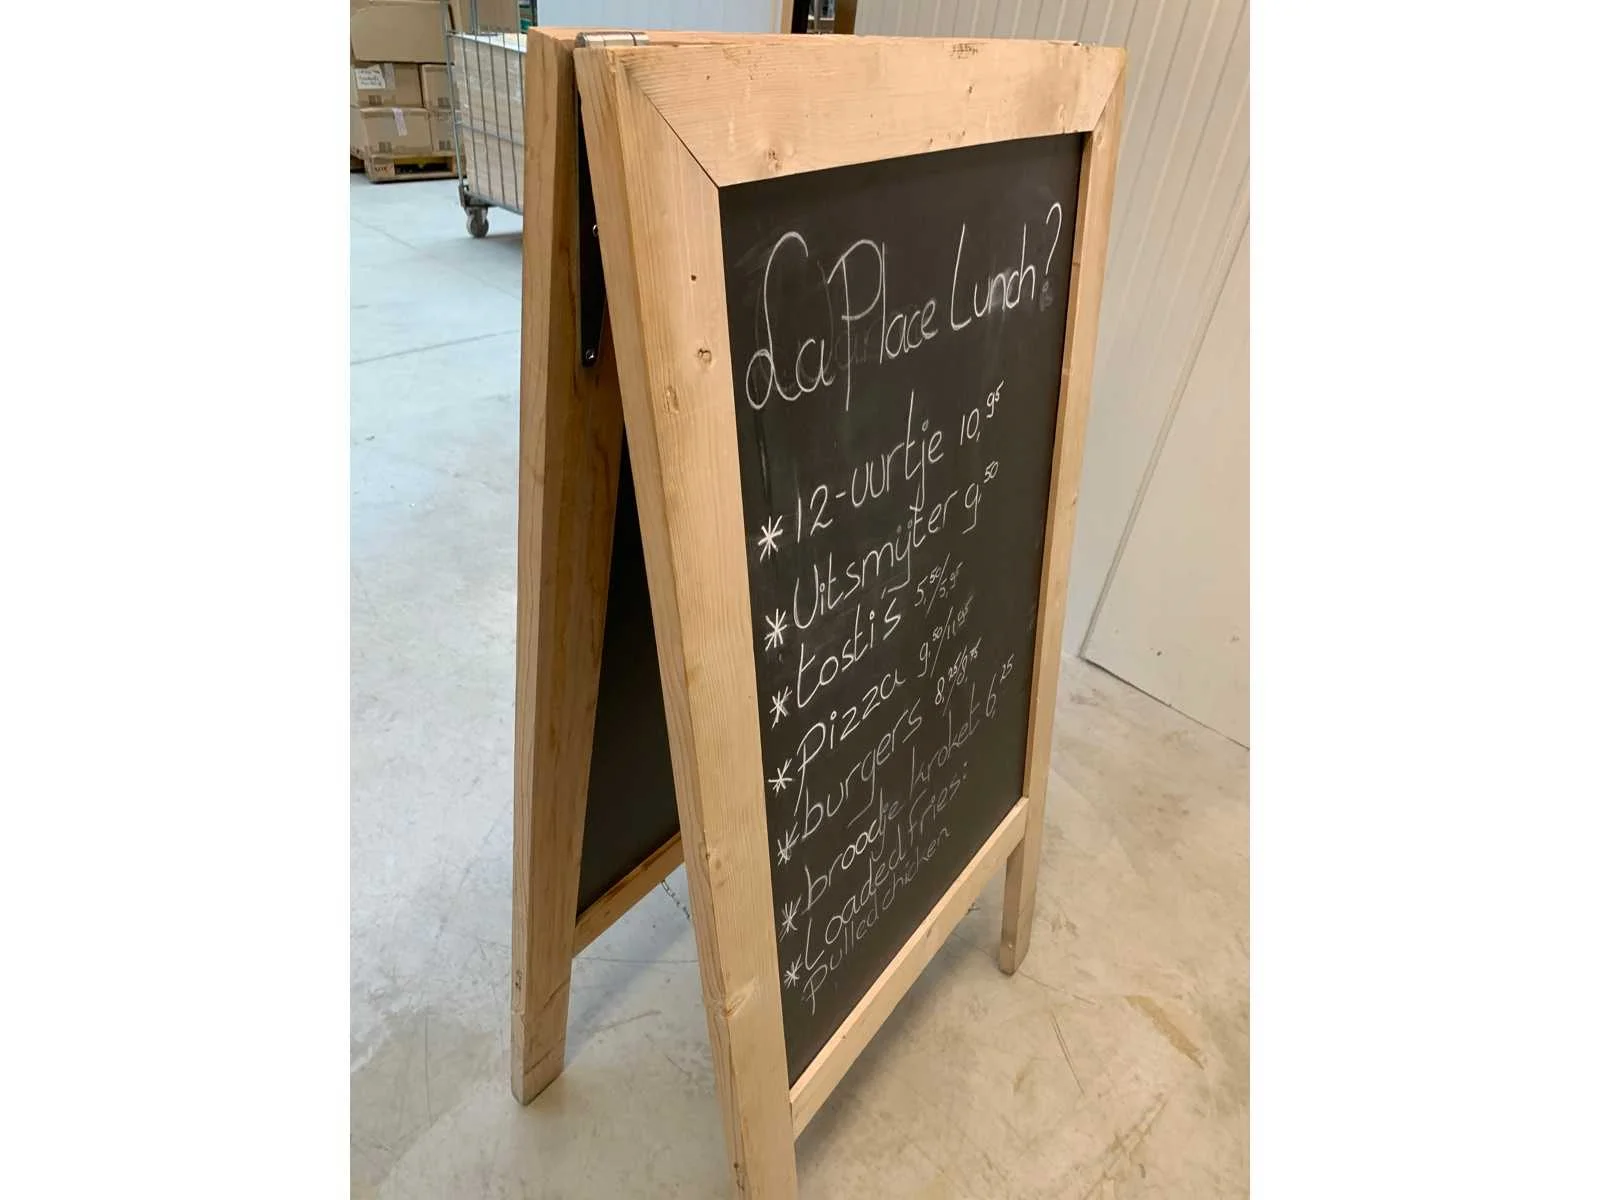 La Place Lunch?
* 12-uurtje 10,95
* Uitsmijter 9,50
* tosti's 5,50/5,95
* Pizza 9,50/11,95
* burgers 8,25/8,75
* broodje kroket 6,25
* Loaded fries:
Pulled chicken